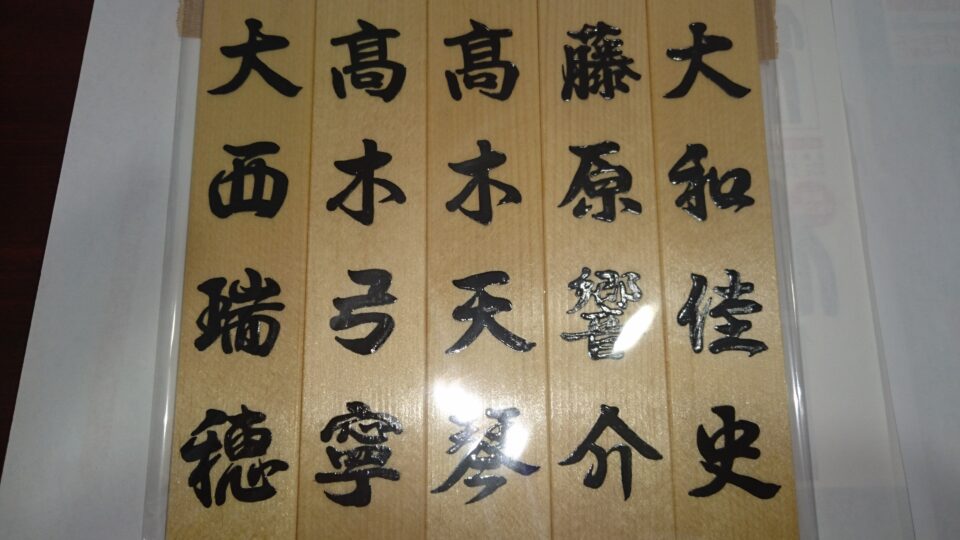 大和佳史
藤原響介
髙木天琴
髙木弓寧
大西瑞穂